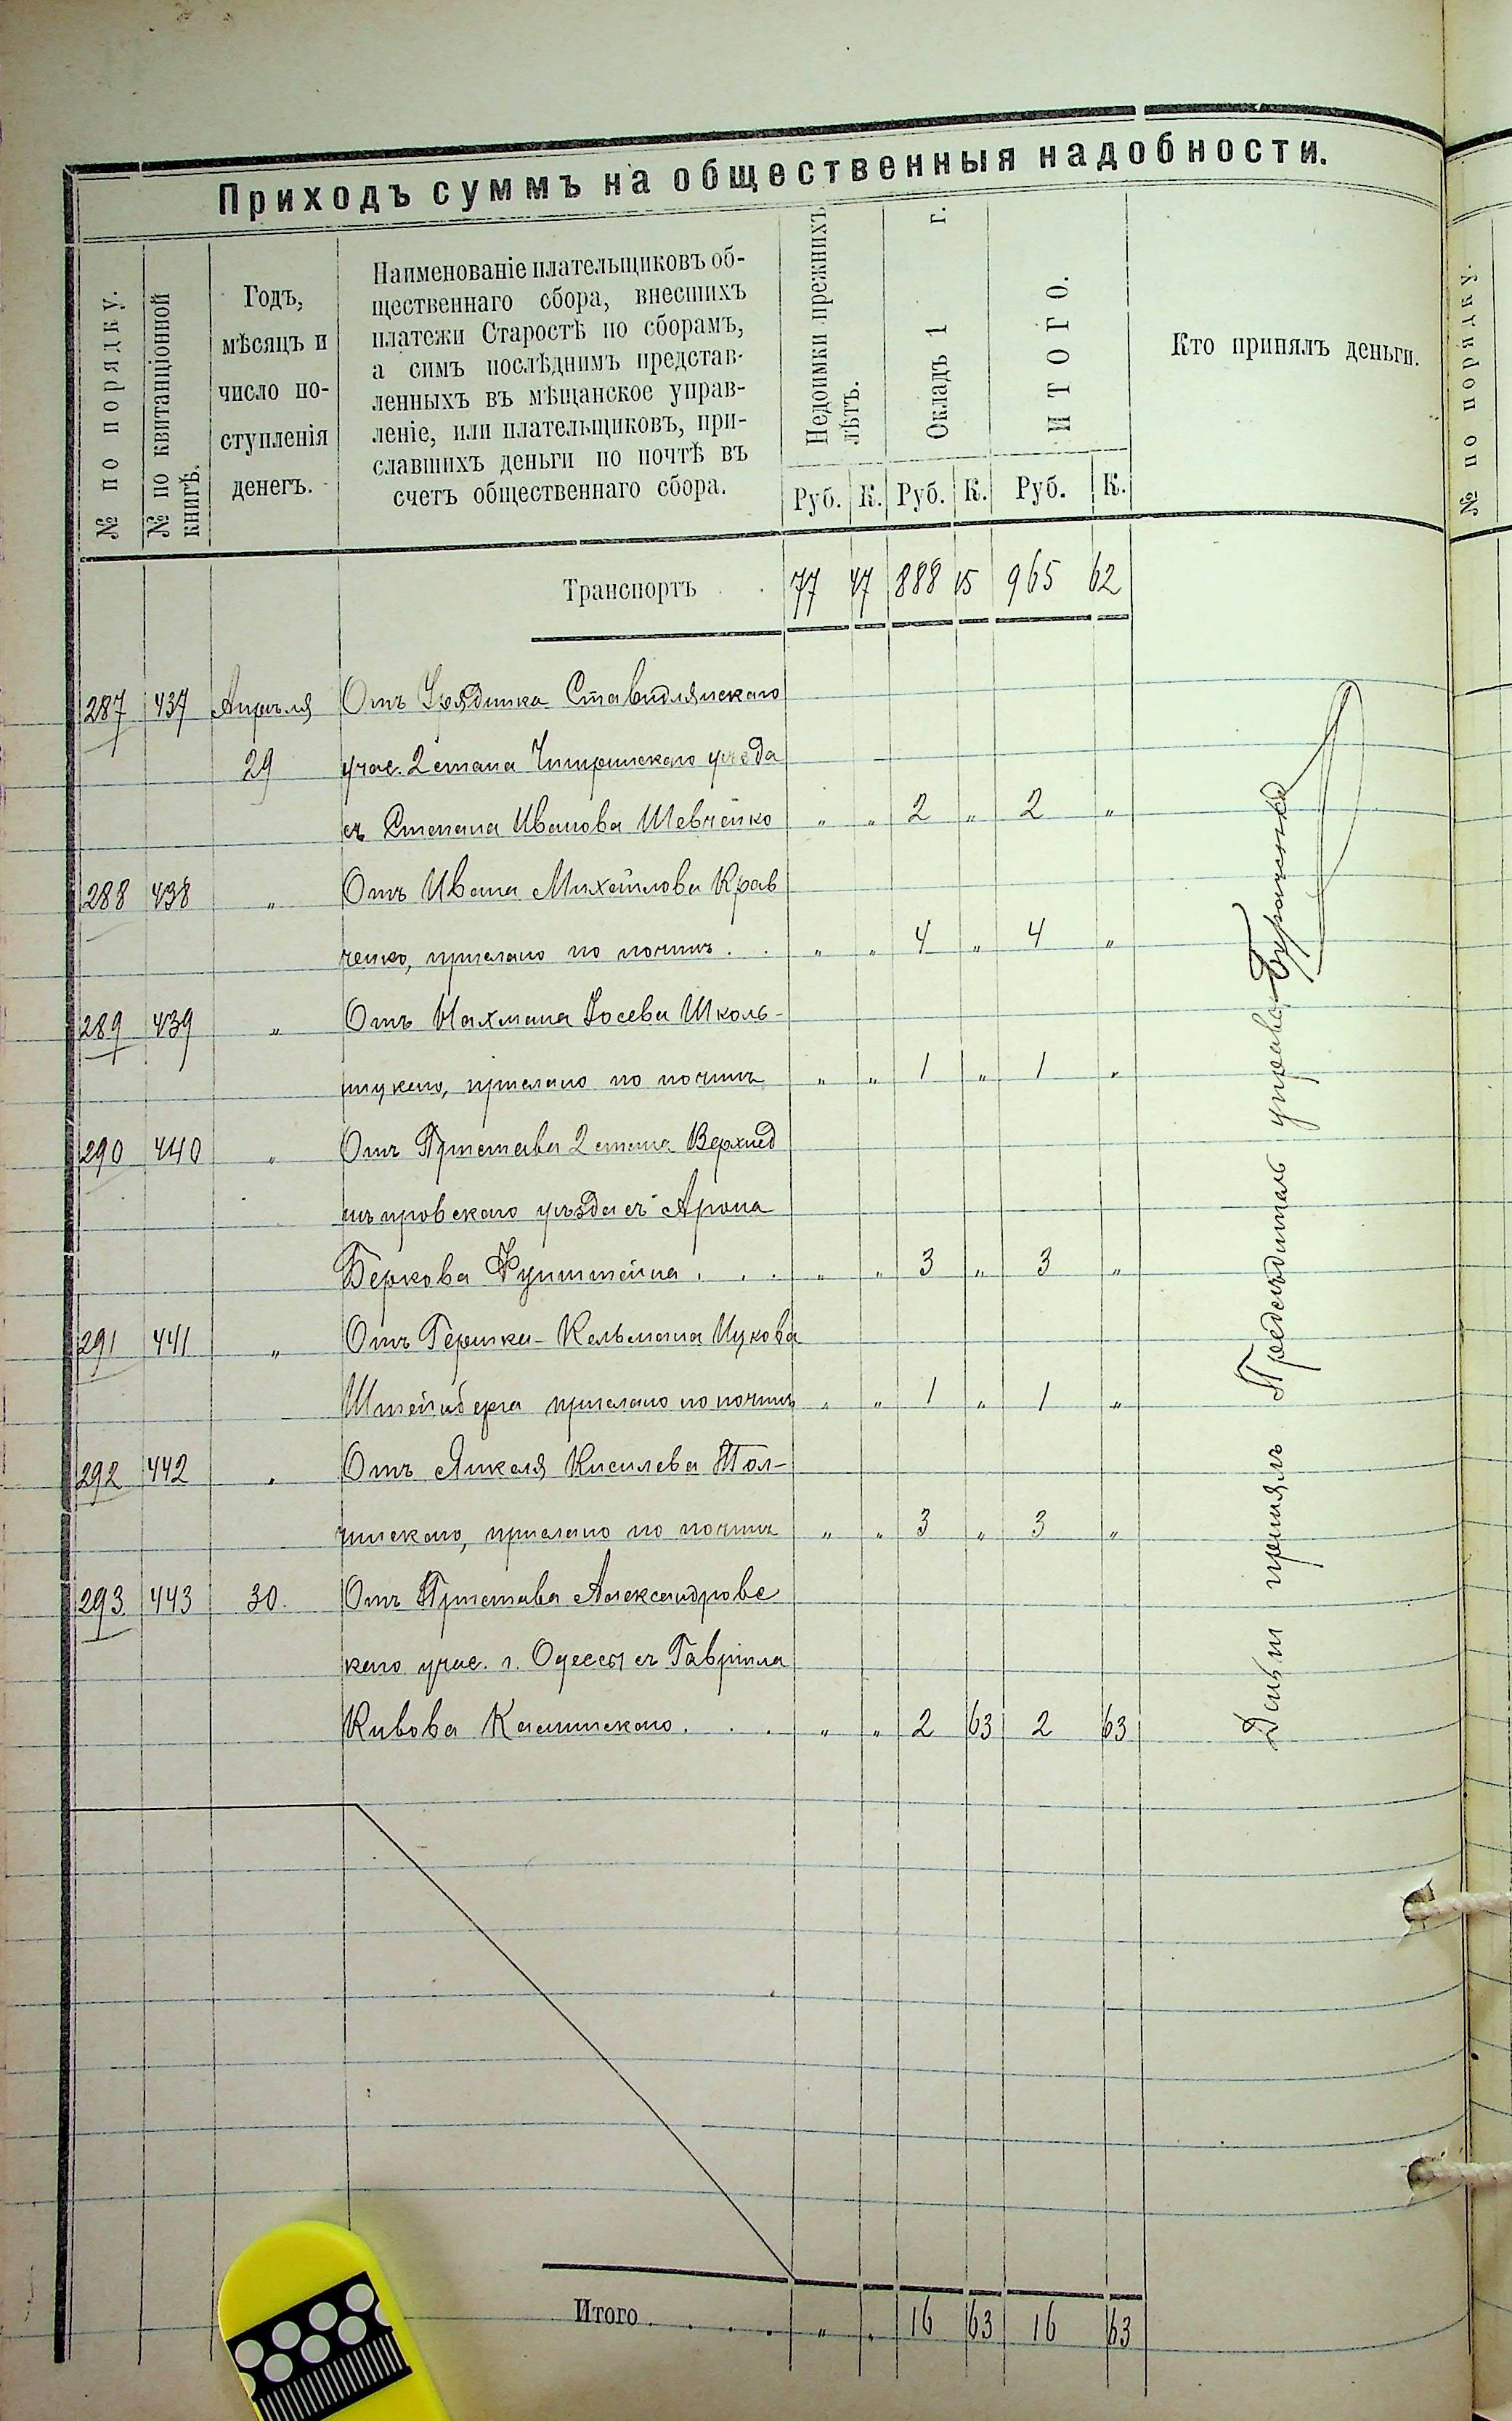 Приходъ суммъ на общественныя надобности.
№ по порядку.
№ по квитанціонной
книгѣ.
Годъ,
мѣсяцъ и
число по-
ступленія
денегъ.
Наименованіе плательщиковъ об-
щественнаго сбора, внесшихъ
платежи Старостѣ по сборамъ,
а симъ послѣднимъ представ-
ленныхъ въ мѣщанское управ-
леніе, или плательщиковъ, при-
славшихъ деньги по почтѣ въ
счетъ общественнаго сбора.
Недоимки прежнихъ
лѣтъ.
Окладъ 1 г.
ИТОГО.
Кто принялъ деньги.
Руб. К. Руб. К. Руб. К.
Транспортъ . . 77 47 888 15 965 62
287 437 Апрѣля Отъ Урядника Ставидлянскаго
29 учас. 2 стана Чигринскаго уѣзда
съ Степана Иванова Шевченко " " 2 " 2 "
288 438 " Отъ Ивана Михайлова Крав
ченко, прислано по почтѣ . . " " 4 " 4 "
289 439 " Отъ Нахмана Іосева Школь-
ницкаго, прислано по почтѣ " " 1 " 1 "
290 440 " Отъ Пристава 2 стана Верхнед
нѣпровскаго уѣзда съ Арона
Беркова . . . " " 3 " 3 "
291 441 " Отъ Гершки-Кельмана Ицкова
Штейнберга прислано по почтѣ " " 1 " 1 "
292 442 " Отъ Янкеля Кисилева Тол-
чинскаго, прислано по почтѣ " " 3 " 3 "
293 443 30. Отъ Пристава Александровс
каго учас. г. Одессы съ Гавріила
Кивова . . . " " 2 63 2 63
Деньги принялъ Предсѣдатель управы
Итого . . . . " " 16 63 16 63
№ по порядку.